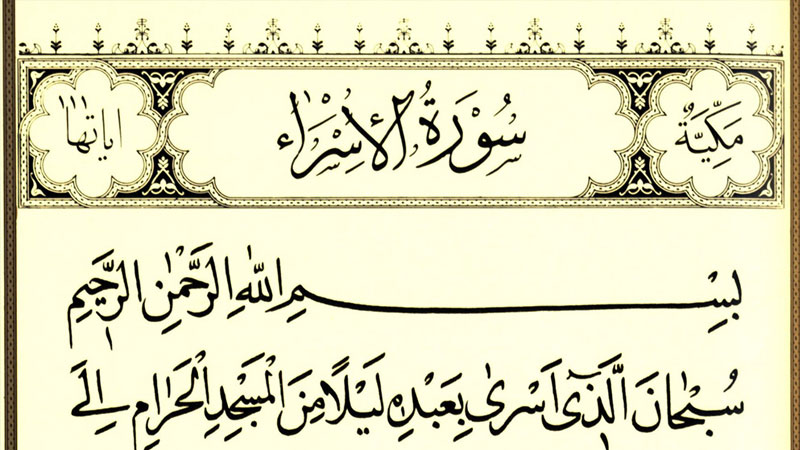 مَكِّيَّةٌ
سُوْرَةُ الْاِسْرَاء
اياتها ١١١
بِسْمِ اللّٰهِ الرَّحْمٰنِ الرَّحٖيمِ
سُبْحَانَ الَّذٖٓى اَسْرٰى بِعَبْدِهٖ لَيْلًا مِنَ الْمَسْجِدِ الْحَرَامِ اِلَى